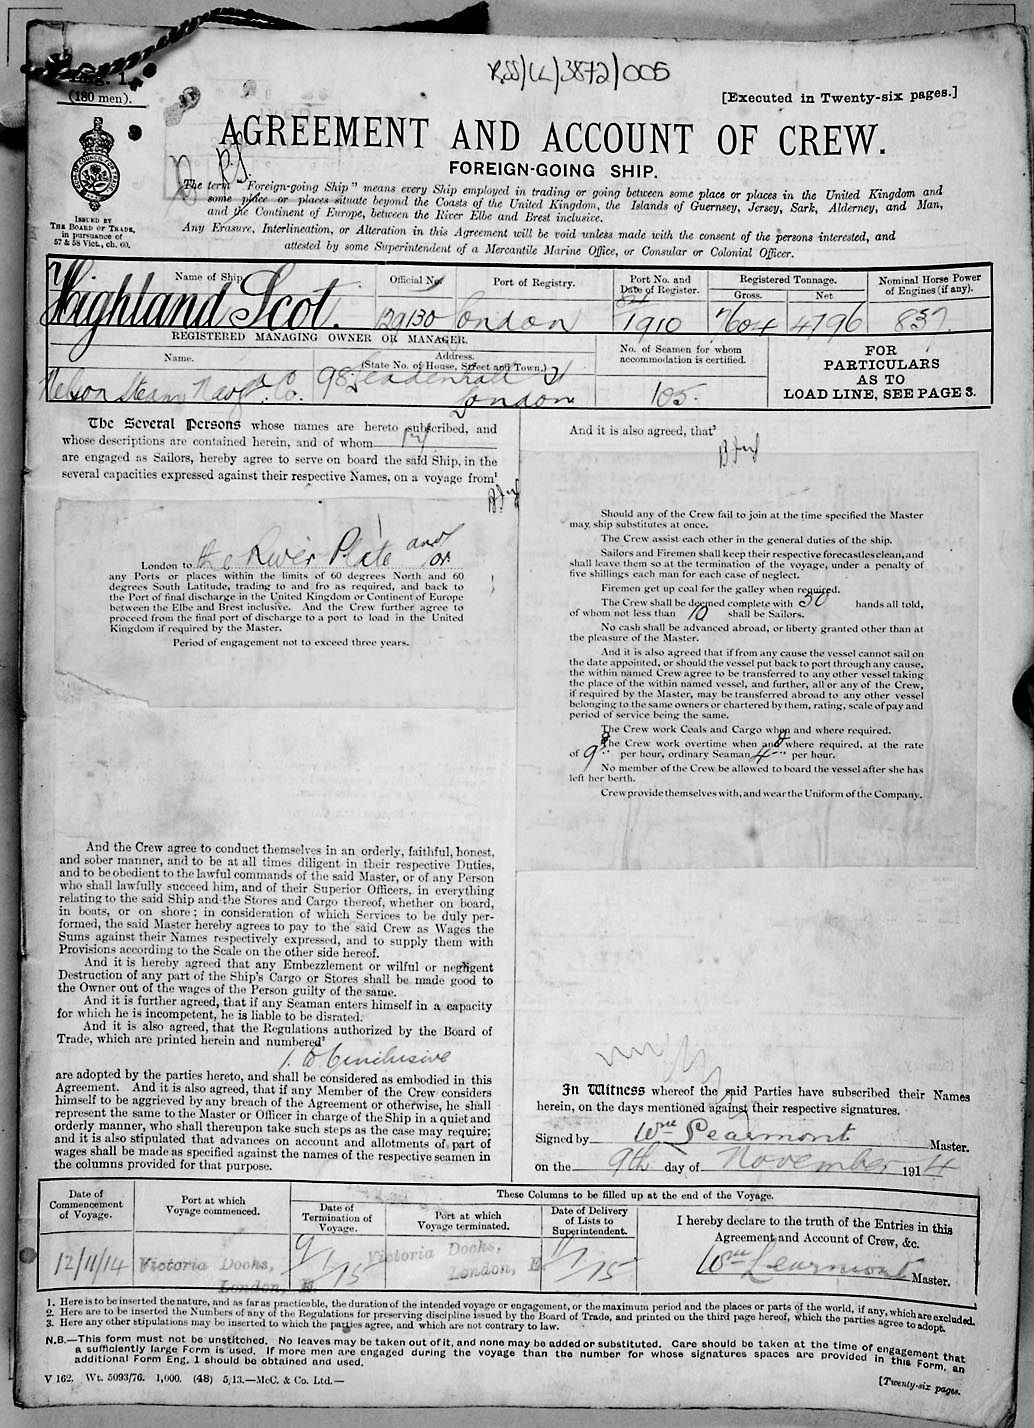 RSS/CL/3872/005
Eng. 1.
(180 men).
[Executed in Twenty-six pages.]
AGREEMENT AND ACCOUNT OF CREW.
FOREIGN-GOING SHIP.
ISSUED BY
THE BOARD OF TRADE,
in pursuance of
57 & 58 Vict., ch. 60.
The term "Foreign-going Ship" means every Ship employed in trading or going between some place or places in the United Kingdom and
some place or places situate beyond the Coasts of the United Kingdom, the Islands of Guernsey, Jersey, Sark, Alderney, and Man,
and the Continent of Europe, between the River Elbe and Brest inclusive.
Any Erasure, Interlineation, or Alteration in this Agreement will be void unless made with the consent of the persons interested, and
attested by some Superintendent of a Mercantile Marine Office, or Consular or Colonial Officer.
Name of Ship.
Official No.
Port of Registry.
Port No. and
Date of Register.
Registered Tonnage.
Gross.
Net
Nominal Horse Power
of Engines (if any).
Highland Scot.
129130
London
84
1910
7604
4796
837
REGISTERED MANAGING OWNER OR MANAGER.
Name.
Address.
(State No. of House, Street and Town.)
No. of Seamen for whom
accommodation is certified.
FOR
PARTICULARS
AS TO
LOAD LINE, SEE PAGE 3.
Nelson Steam Navgn. Co.
98 Leadenhall St
London
105.
The Several Persons whose names are hereto subscribed, and
whose descriptions are contained herein, and of whom
are engaged as Sailors, hereby agree to serve on board the said Ship, in the
several capacities expressed against their respective Names, on a voyage from¹
London to the River Plate and/or
any Ports or places within the limits of 60 degrees North and 60
degrees South Latitude, trading to and fro as required, and back to
the Port of final discharge in the United Kingdom or Continent of Europe
between the Elbe and Brest inclusive. And the Crew further agree to
proceed from the final port of discharge to a port to load in the United
Kingdom if required by the Master.
Period of engagement not to exceed three years.
And the Crew agree to conduct themselves in an orderly, faithful, honest,
and sober manner, and to be at all times diligent in their respective Duties,
and to be obedient to the lawful commands of the said Master, or of any Person
who shall lawfully succeed him, and of their Superior Officers, in everything
relating to the said Ship and the Stores and Cargo thereof, whether on board,
in boats, or on shore; in consideration of which Services to be duly per-
formed, the said Master hereby agrees to pay to the said Crew as Wages the
Sums against their Names respectively expressed, and to supply them with
Provisions according to the Scale on the other side hereof.
And it is hereby agreed that any Embezzlement or wilful or negligent
Destruction of any part of the Ship's Cargo or Stores shall be made good to
the Owner out of the wages of the Person guilty of the same.
And it is further agreed, that if any Seaman enters himself in a capacity
for which he is incompetent, he is liable to be disrated.
And it is also agreed, that the Regulations authorized by the Board of
Trade, which are printed herein and numbered²
1 to 6 inclusive
are adopted by the parties hereto, and shall be considered as embodied in this
Agreement. And it is also agreed, that if any Member of the Crew considers
himself to be aggrieved by any breach of the Agreement or otherwise, he shall
represent the same to the Master or Officer in charge of the Ship in a quiet and
orderly manner, who shall thereupon take such steps as the case may require;
and it is also stipulated that advances on account and allotments of part of
wages shall be made as specified against the names of the respective seamen in
the columns provided for that purpose.
And it is also agreed, that³
Should any of the Crew fail to join at the time specified the Master
may ship substitutes at once.
The Crew assist each other in the general duties of the ship.
Sailors and Firemen shall keep their respective forecastles clean, and
shall leave them so at the termination of the voyage, under a penalty of
five shillings each man for each case of neglect.
Firemen get up coal for the galley when required.
The Crew shall be deemed complete with 50 hands all told,
of whom not less than 10 shall be Sailors.
No cash shall be advanced abroad, or liberty granted other than at
the pleasure of the Master.
And it is also agreed that if from any cause the vessel cannot sail on
the date appointed, or should the vessel put back to port through any cause,
the within named Crew agree to be transferred to any other vessel taking
the place of the within named vessel, and further, all or any of the Crew,
if required by the Master, may be transferred abroad to any other vessel
belonging to the same owners or chartered by them, rating, scale of pay and
period of service being the same.
The Crew work Coals and Cargo when and where required.
The Crew work overtime when and where required, at the rate
of 9d per hour, ordinary Seaman 4d per hour.
No member of the Crew be allowed to board the vessel after she has
left her berth.
Crew provide themselves with, and wear the Uniform of the Company.
In Witness whereof the said Parties have subscribed their Names
herein, on the days mentioned against their respective signatures.
Signed by Wm Learmont Master.
on the 9th day of November 1914
Date of
Commencement
of Voyage.
Port at which
Voyage commenced.
These Columns to be filled up at the end of the Voyage.
Date of
Termination of
Voyage.
Port at which
Voyage terminated.
Date of Delivery
of Lists to
Superintendent.
I hereby declare to the truth of the Entries in this
Agreement and Account of Crew, &c.
12/11/14
Victoria Docks,
London, E.
9/1/15
Victoria Docks,
London, E
11/1/15
Wm Learmont Master.
1. Here is to be inserted the nature, and as far as practicable, the duration of the intended voyage or engagement, or the maximum period and the places or parts of the world, if any, which are excluded.
2. Here are to be inserted the Numbers of any of the Regulations for preserving discipline issued by the Board of Trade, and printed on the third page hereof, which the parties agree to adopt.
3. Here any other stipulations may be inserted to which the parties agree, and which are not contrary to law.
N.B.—This form must not be unstitched. No leaves may be taken out of it, and none may be added or substituted. Care should be taken at the time of engagement that
a sufficiently large Form is used. If more men are engaged during the voyage than the number for whose signatures spaces are provided in this Form, an
additional Form Eng. 1 should be obtained and used.
V 162. Wt. 5093/76. 1,000. (48) 5/13.—McC. & Co. Ltd.—
[Twenty-six pages.